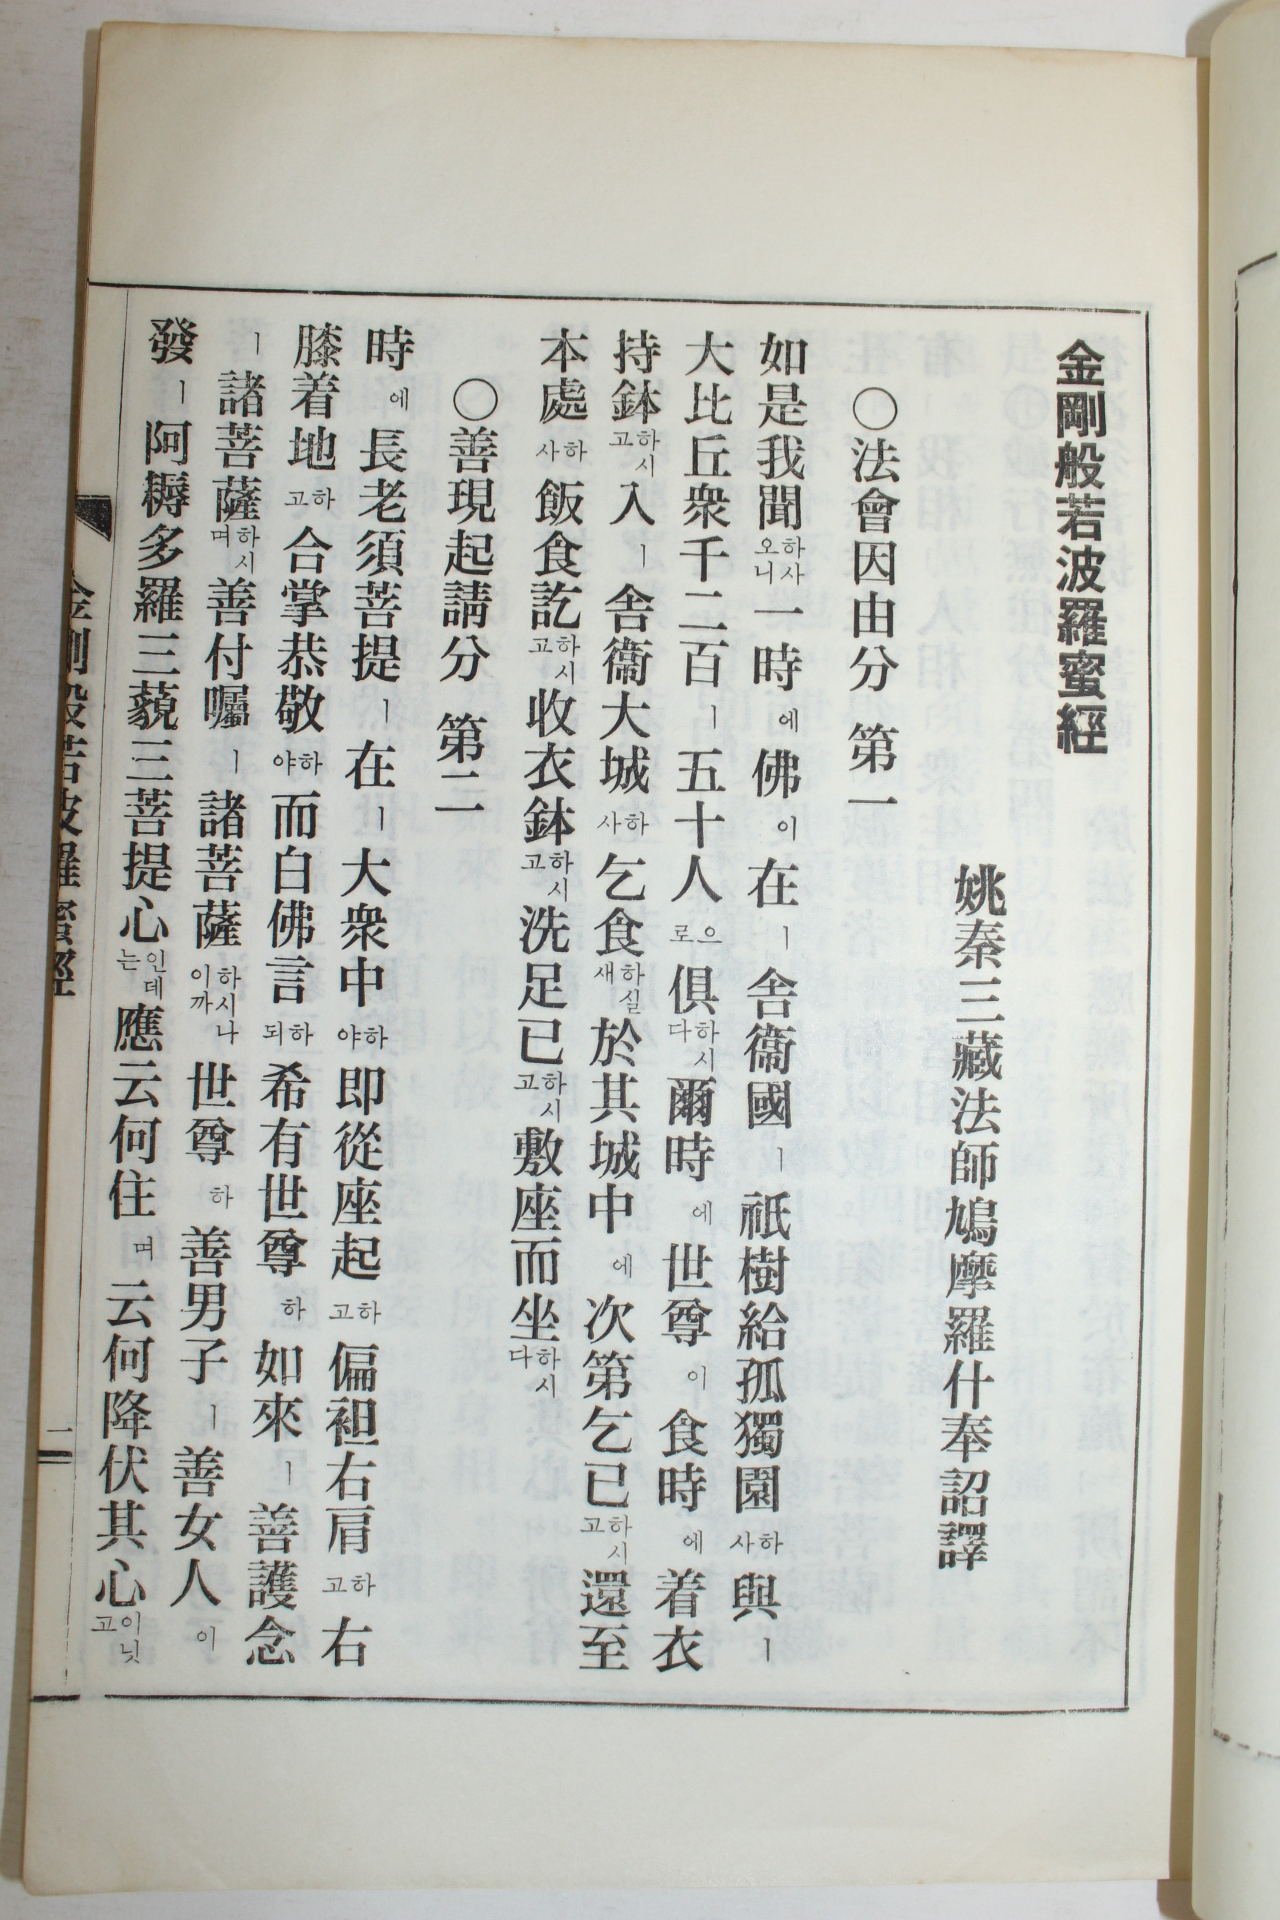 金剛般若波羅蜜經
姚秦三藏法師鳩摩羅什奉詔譯
○法會因由分 第一
如是我聞하사오니一時에佛이在ㅣ舍衞國ㅣ祇樹給孤獨園하사與ㅣ
大比丘衆千二百ㅣ五十人으로俱하시다爾時에世尊이食時에着衣
持鉢하시고入ㅣ舍衞大城하사乞食하실새於其城中에次第乞已하시고還至
本處하사飯食訖하시고收衣鉢하시고洗足已하시고敷座而坐하시다
○善現起請分 第二
時에長老須菩提ㅣ在ㅣ大衆中하야即從座起하고偏袒右肩하고右
膝着地하고合掌恭敬하야而白佛言하되希有世尊하如來ㅣ善護念
ㅣ諸菩薩하시며善付囑ㅣ諸菩薩하시나이까世尊하善男子ㅣ善女人이
發ㅣ阿耨多羅三藐三菩提心인데는應云何住며云何降伏其心이닛고
金剛般若波羅蜜經